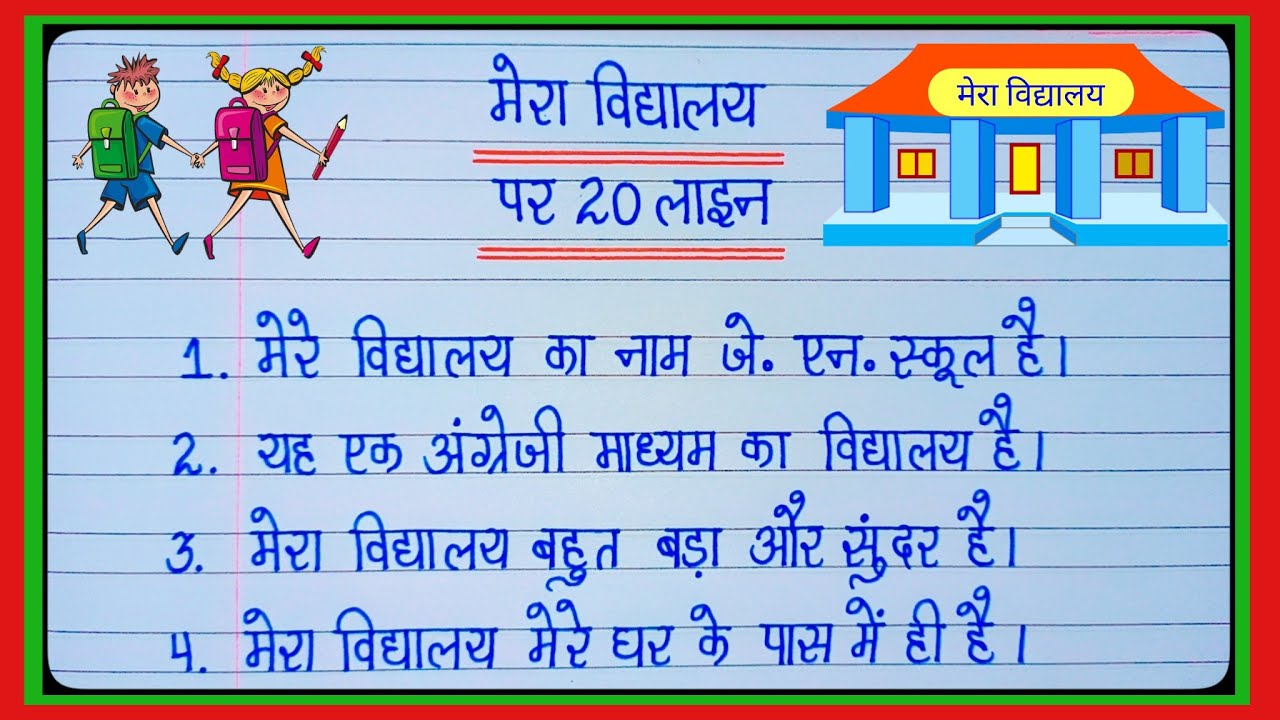 मेरा विद्यालय
पर 20 लाइन
मेरा विद्यालय
1. मेरे विद्यालय का नाम जे. एन. स्कूल है।
2. यह एक अंग्रेजी माध्यम का विद्यालय है।
3. मेरा विद्यालय बहुत बड़ा और सुंदर है।
4. मेरा विद्यालय मेरे घर के पास में ही है।